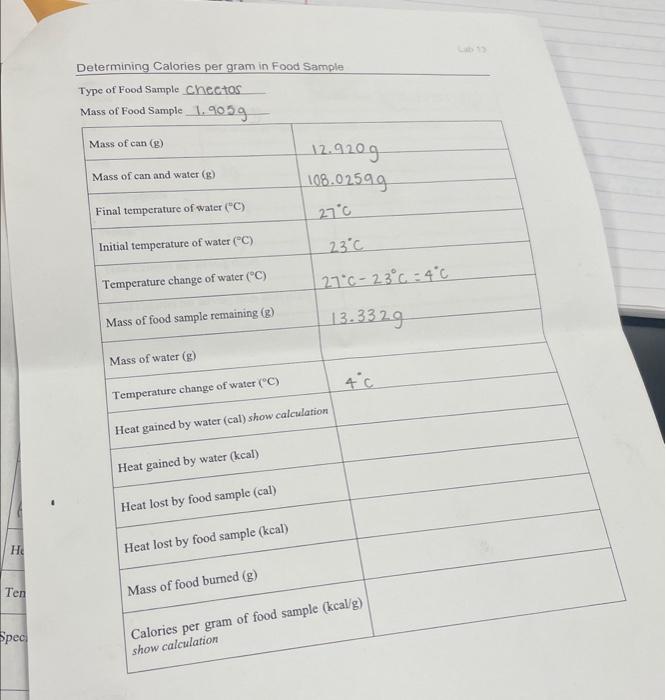 Lab 13
Determining Calories per gram in Food Sample
Type of Food Sample Cheetos
Mass of Food Sample 1.905g
Mass of can (g) 12.920g
Mass of can and water (g) 108.0259g
Final temperature of water (°C) 27°C
Initial temperature of water (°C) 23°C
Temperature change of water (°C) 27°C - 23°C = 4°C
Mass of food sample remaining (g) 13.332g
Mass of water (g)
Temperature change of water (°C) 4°C
Heat gained by water (cal) show calculation
Heat gained by water (kcal)
Heat lost by food sample (cal)
Heat lost by food sample (kcal)
Mass of food burned (g)
Calories per gram of food sample (kcal/g)
show calculation
He
Ten
Spec